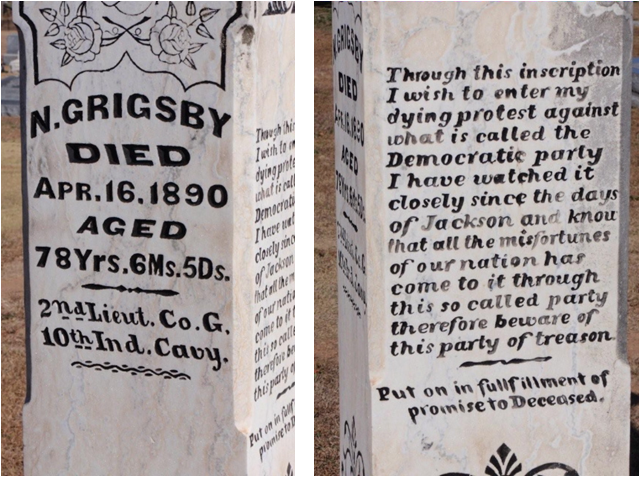 N. GRIGSBY
DIED
APR. 16, 1890
AGED
78Yrs. 6Ms. 5Ds.
2nd Lieut. Co. G.
10th Ind. Cavy.
Through this inscription
I wish to enter my
dying protest against
what is called the
Democratic party
I have watched it
closely since the days
of Jackson and know
that all the misfortunes
of our nation has
come to it through
this so called party
therefore beware of
this party of treason.
Put on in fullfillment of
promise to Deceased.